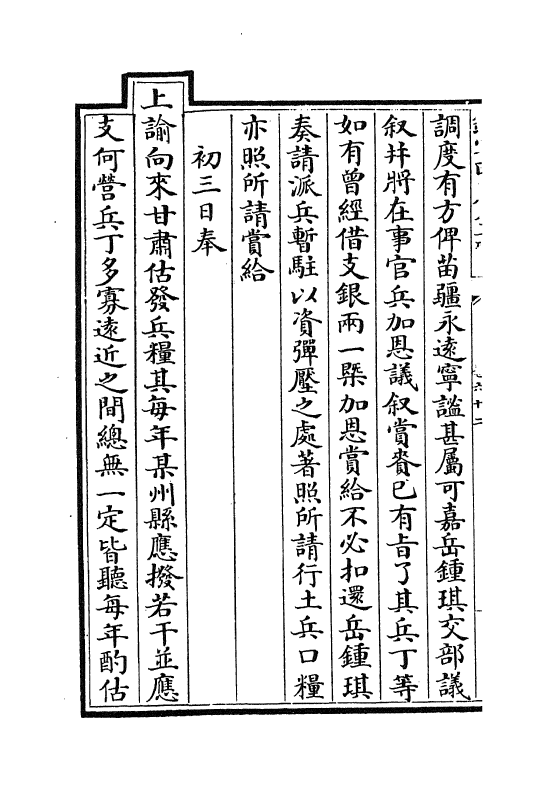 調度有方俾苗疆永遠寧謐甚屬可嘉岳鍾琪交部議
叙并將在事官兵加恩議叙賞賚已有旨了其兵丁等
如有曾經借支銀兩一槩加恩賞給不必扣還岳鍾琪
奏請派兵暫駐以資彈壓之處著照所請行土兵口糧
亦照所請賞給
初三日奉
上諭向來甘肅估發兵糧其每年某州縣應撥若干並應
支何營兵丁多寡遠近之間總無一定皆聽每年酌估